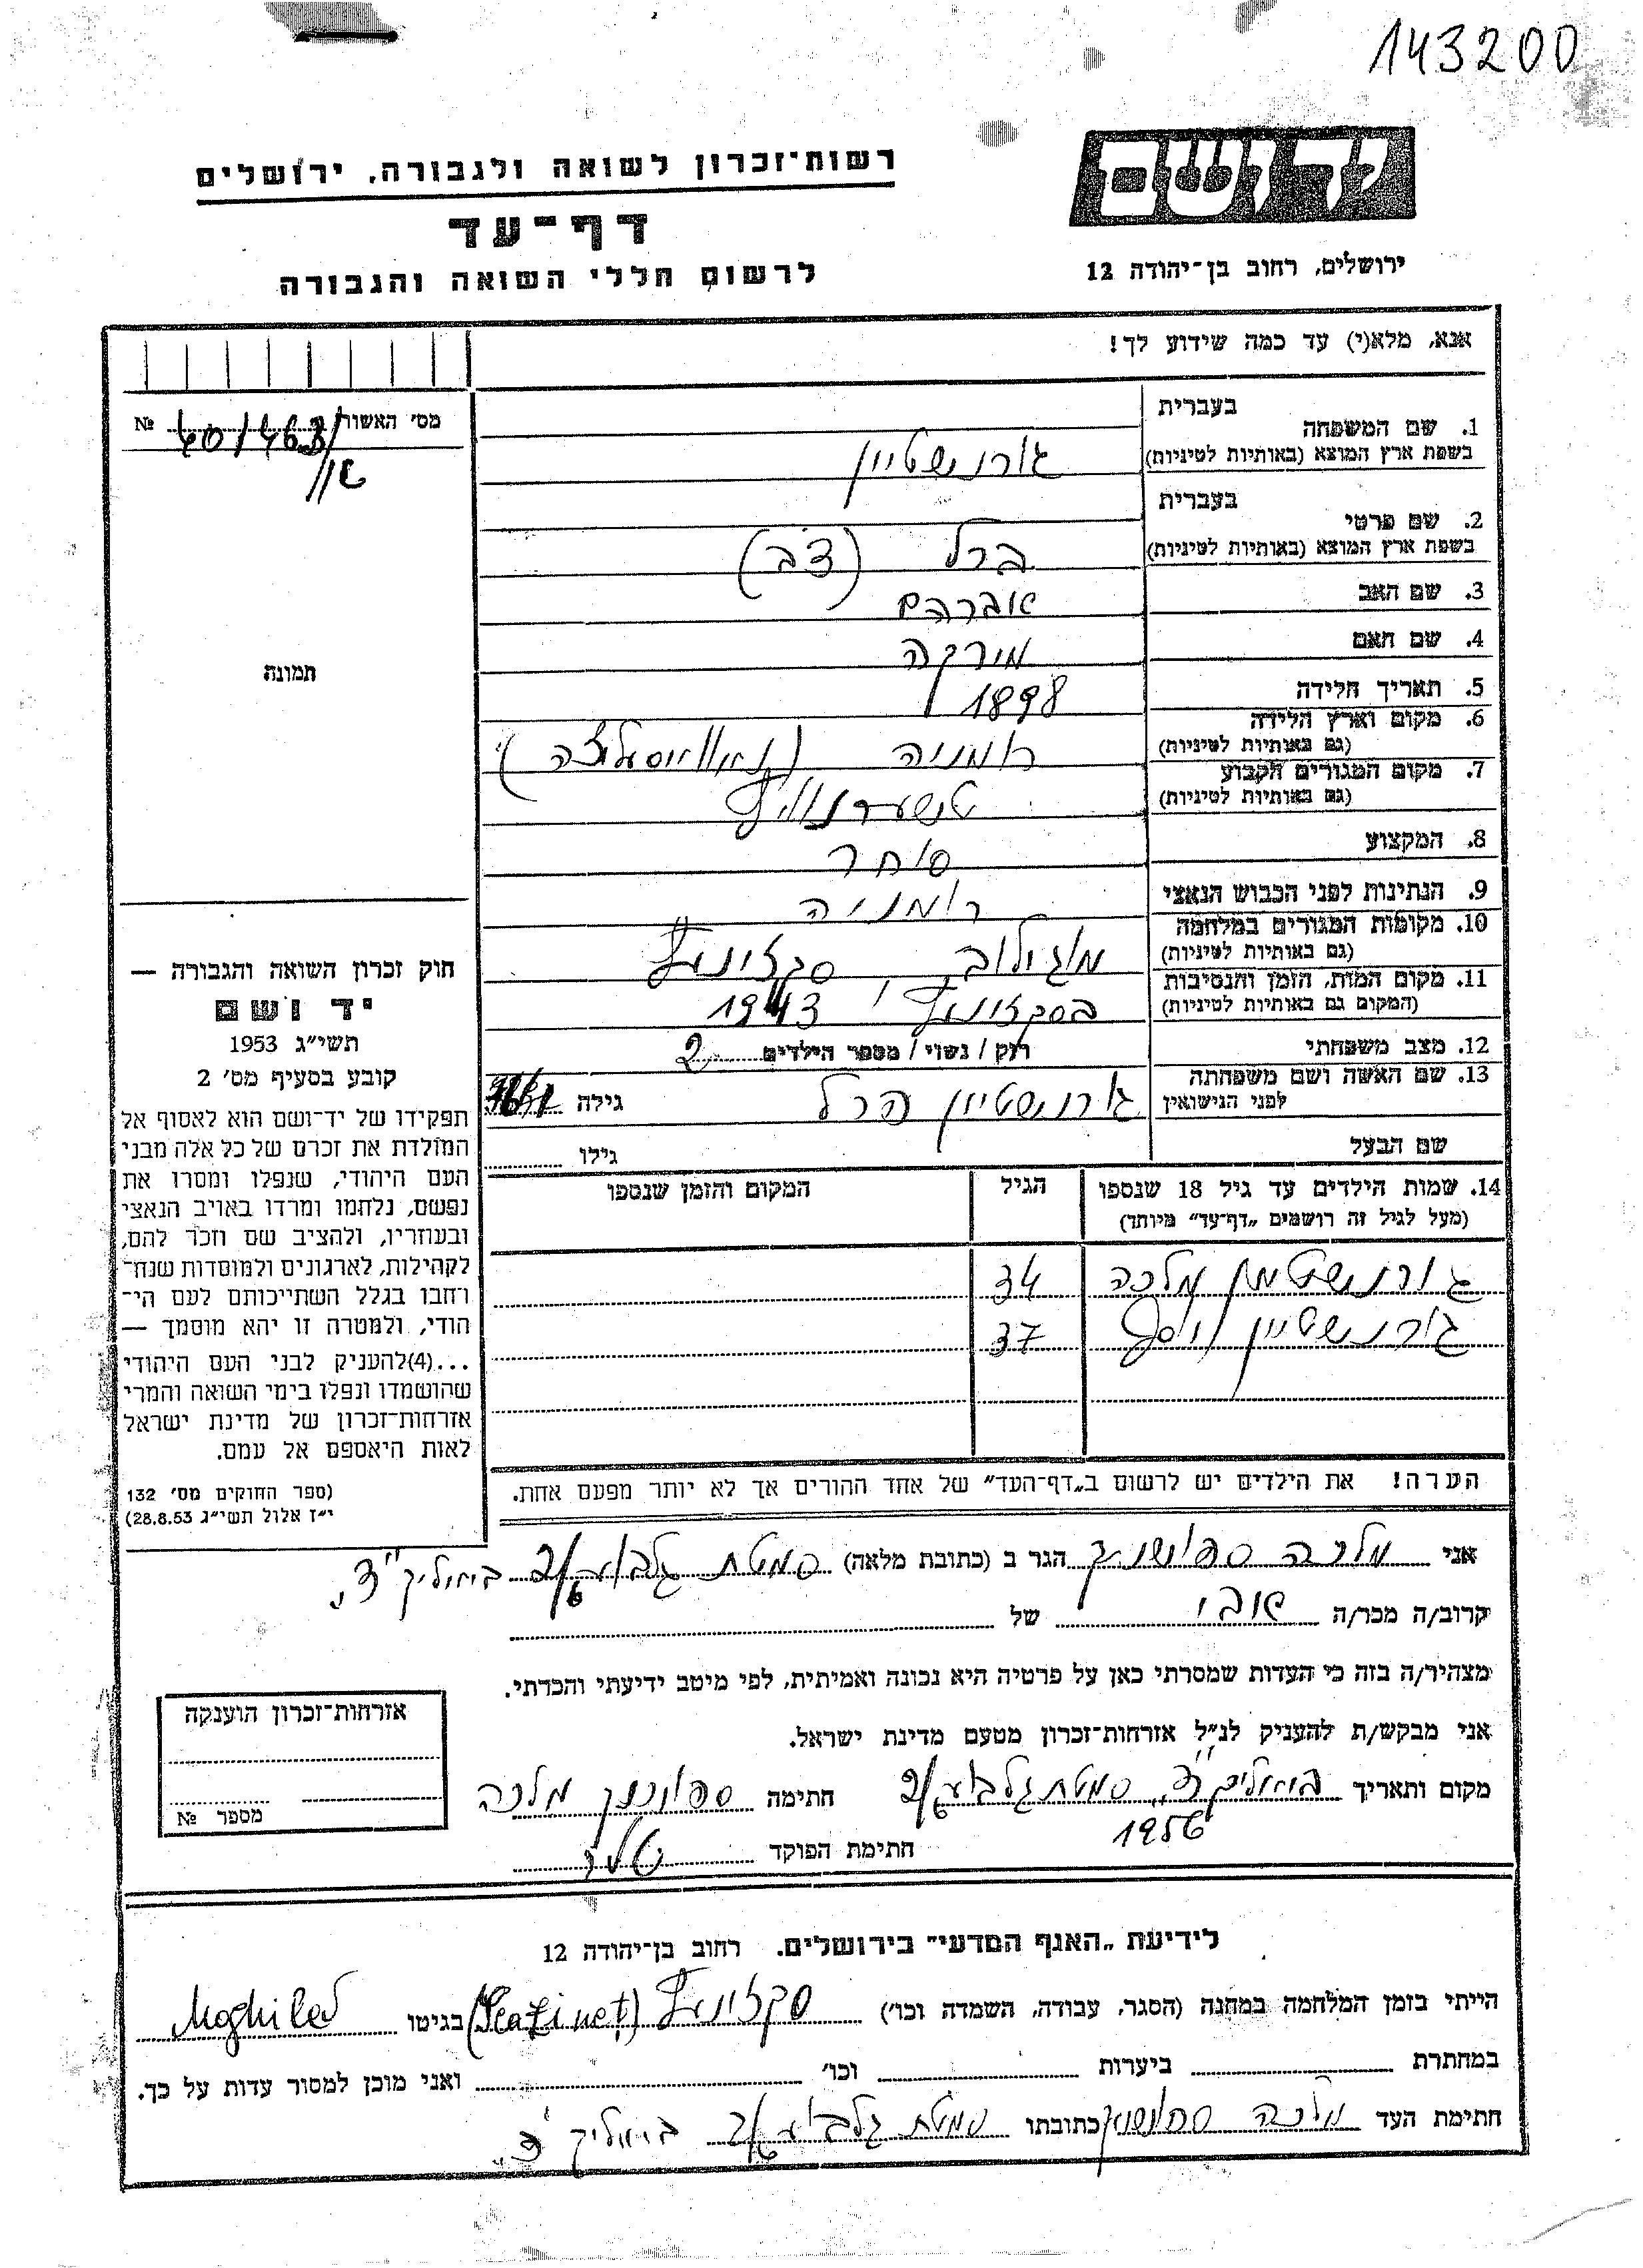 143200
רשות־זכרון לשואה ולגבורה, ירושלים
דף־עד
לרשום חללי השואה והגבורה
יד ושם
ירושלים, רחוב בן־יהודה 12
אנא, מלא(י) עד כמה שידוע לך!
מס׳ האשור №
בעברית
1. שם המשפחה
בשפת ארץ המוצא (באותיות לטיניות)
גורנשטיין
בעברית
2. שם פרטי
בשפת ארץ המוצא (באותיות לטיניות)
ברל (דב)
3. שם האב אברהם
4. שם האם מירקה
5. תאריך הלידה 1898
6. מקום וארץ הלידה
(גם באותיות לטיניות)
רומניה
7. מקום המגורים הקבוע
(גם באותיות לטיניות)
8. המקצוע סוחר
9. הנתינות לפני הכבוש הנאצי רומניה
10. מקומות המגורים במלחמה
(גם באותיות לטיניות)
מוגילוב, סקזינץ
11. מקום המות, הזמן והנסיבות
(המקום גם באותיות לטיניות)
בסקזינץ, 1943
12. מצב משפחתי רוק / נשוי / מספר הילדים 2
13. שם האשה ושם משפחתה
לפני הנישואין
גורנשטיין
גילה
שם הבעל גילו
14. שמות הילדים עד גיל 18 שנספו הגיל המקום והזמן שנספו
(מעל לגיל זה רושמים „דף־עד״ מיוחד)
גורנשטיין מלכה 34
גורנשטיין יוסף 37
תמונה
חוק זכרון השואה והגבורה —
יד ושם
תשי״ג 1953
קובע בסעיף מס׳ 2
תפקידו של יד־ושם הוא לאסוף אל
המולדת את זכרם של כל אלה מבני
העם היהודי, שנפלו ומסרו את
נפשם, נלחמו ומרדו באויב הנאצי
ובעוזריו, ולהציב שם וזכר להם,
לקהילות, לארגונים ולמוסדות שנח־
רחבו בגלל השתייכותם לעם הי־
הודי, ולמטרה זו יהא מוסמך —
...(4)להעניק לבני העם היהודי
שהושמדו ונפלו בימי השואה והמרי
אזרחות־זכרון של מדינת ישראל
לאות היאספם אל עמם.
(ספר החוקים מס׳ 132
י״ז אלול תשי״ג 28.8.53)
הערה! את הילדים יש לרשום ב„דף־העד״ של אחד ההורים אך לא יותר מפעם אחת.
אני מלכה הגר ב (כתובת מלאה) סמטת גלבוע
קרוב/ה מכר/ה אבי של
מצהיר/ה בזה כי העדות שמסרתי כאן על פרטיה היא נכונה ואמיתית, לפי מיטב ידיעתי והכרתי.
אני מבקש/ת להעניק לנ״ל אזרחות־זכרון מטעם מדינת ישראל.
מקום ותאריך סמטת גלבוע חתימה מלכה
1956
חתימת הפוקד
אזרחות־זכרון הוענקה
מספר №
לידיעת „האגף המדעי״ בירושלים, רחוב בן־יהודה 12
הייתי בזמן המלחמה במחנה (הסגר, עבודה, השמדה וכו׳) סקזינץ (Scazineț) בגיטו Moghilev
במחתרת ביערות וכו׳ ואני מוכן למסור עדות על כך.
חתימת העד מלכה כתובתו סמטת גלבוע